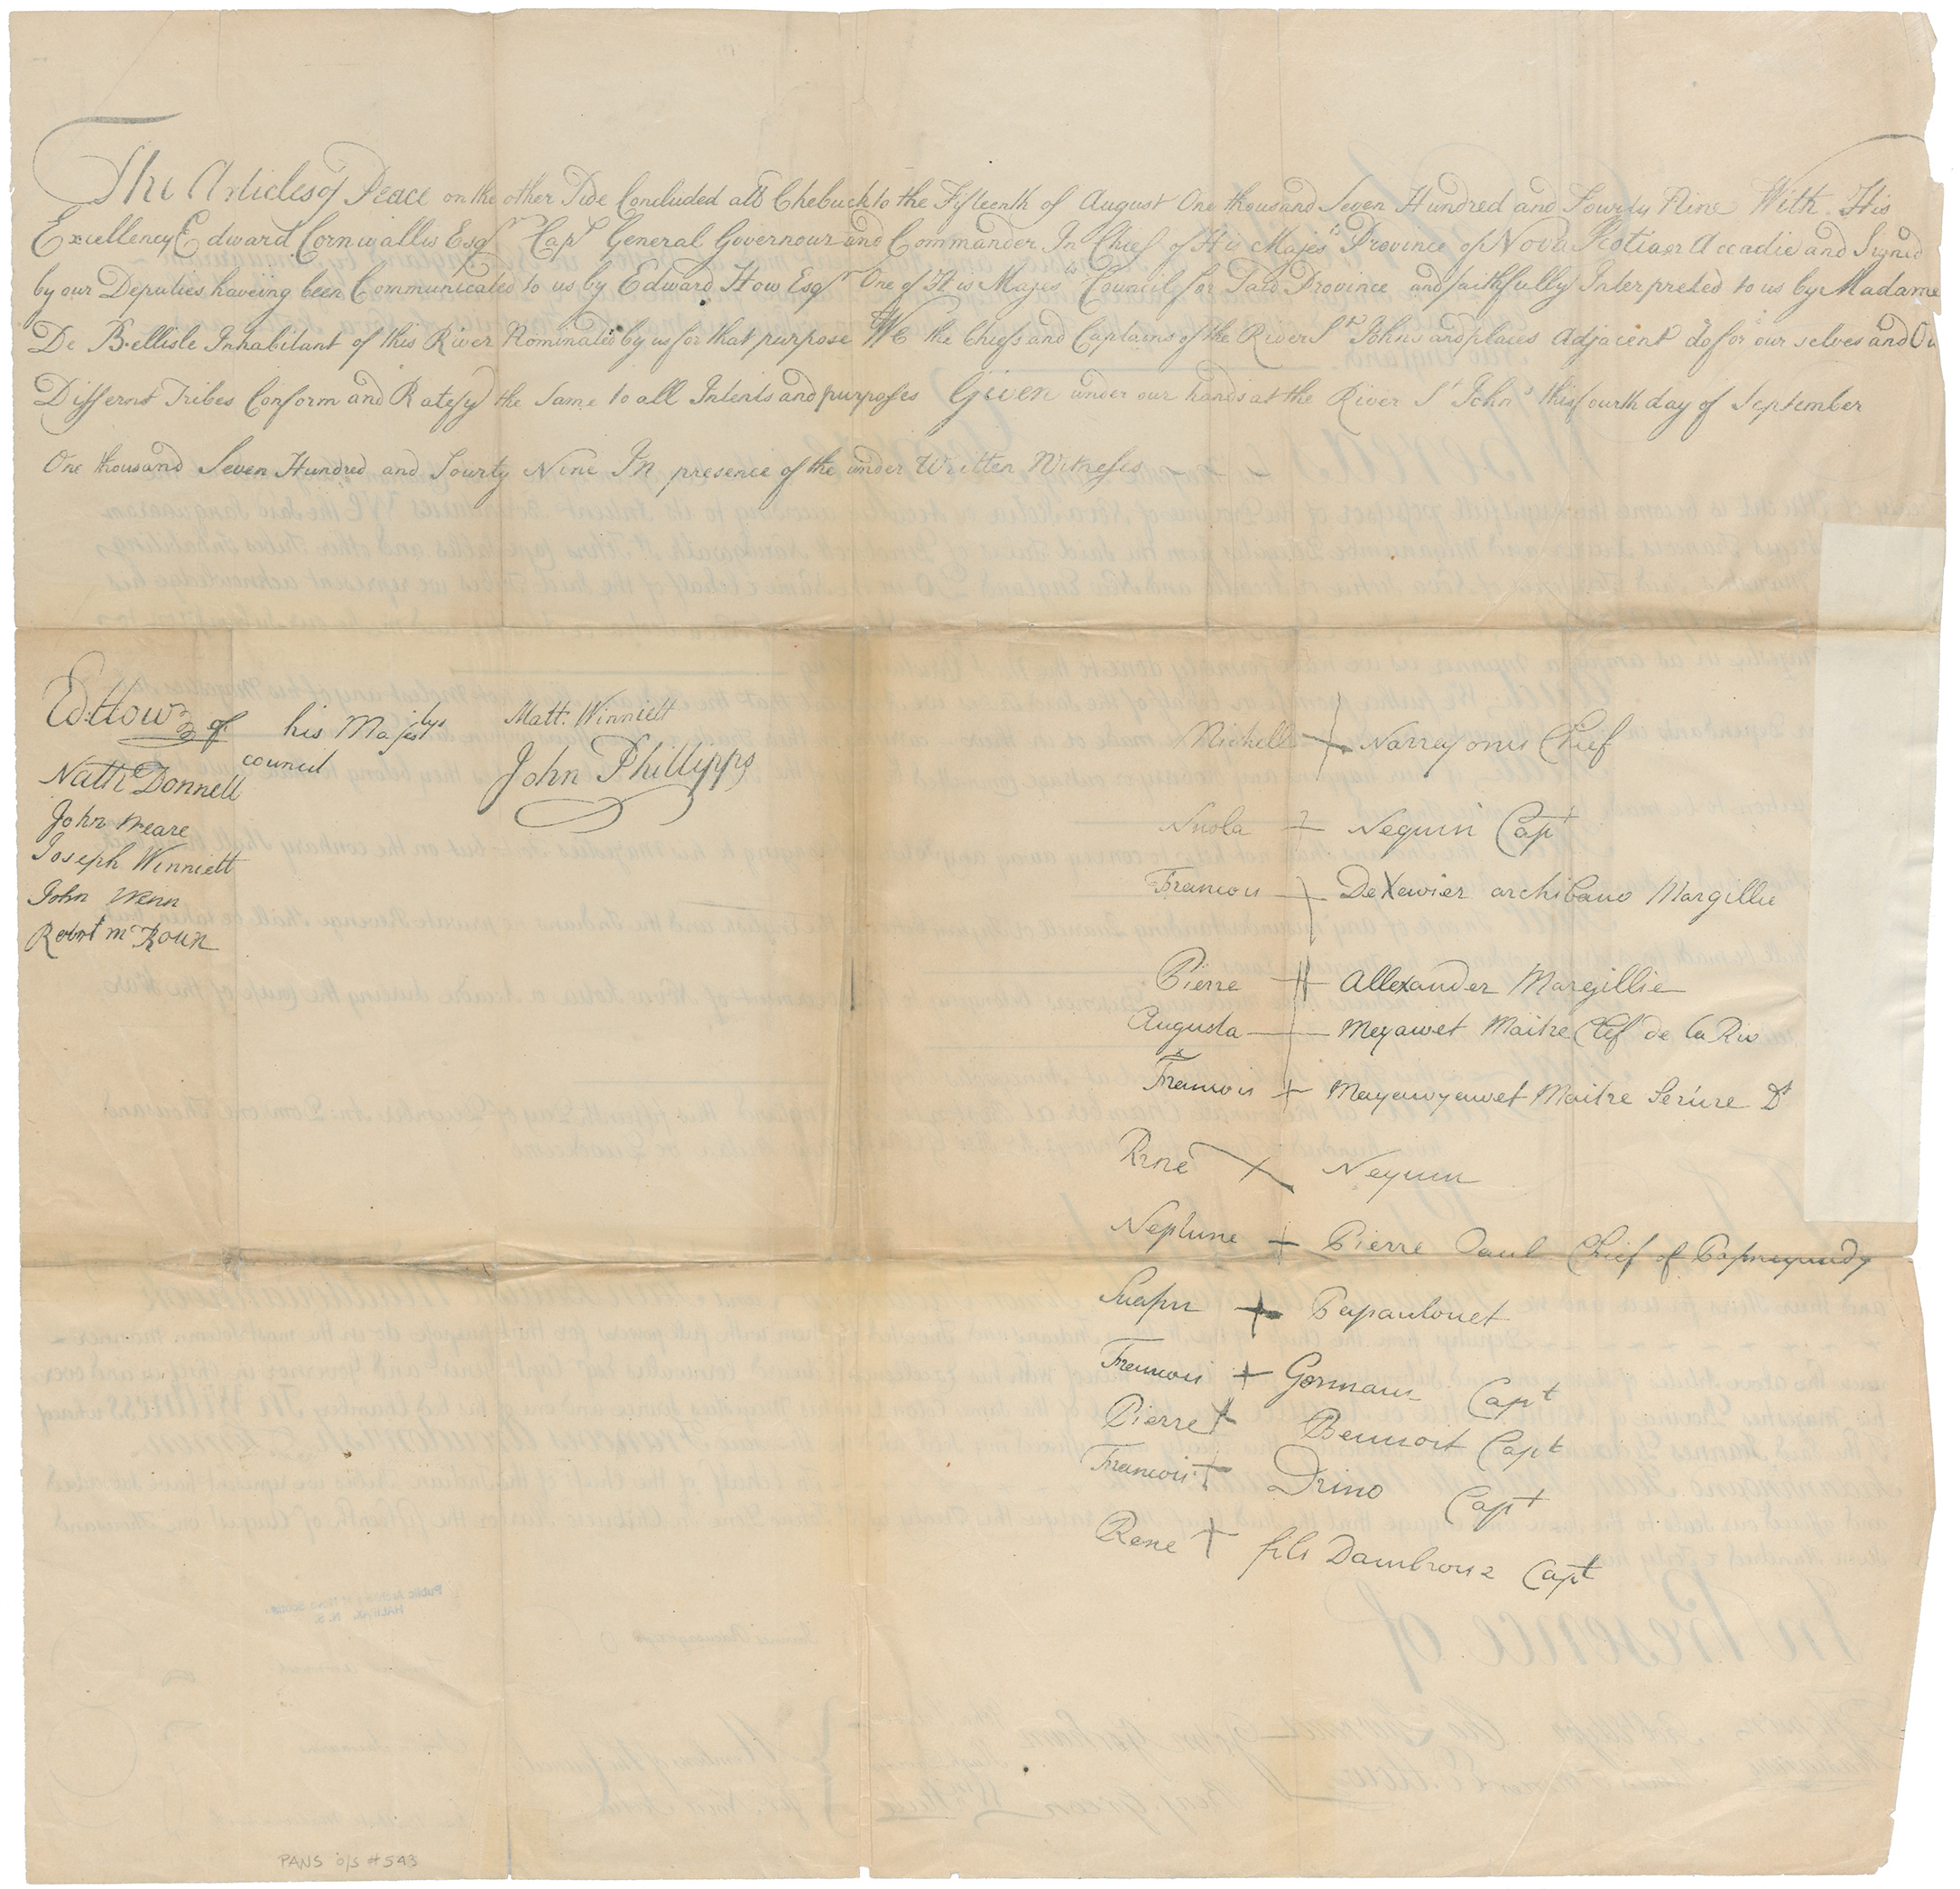 The Articles of Peace on the other Side Concluded att Chebuckto the Fifteenth of August One thousand Seven Hundred and Fourty Nine With His
Excellency Edward Cornwallis Esqr Capt General Governour and Commander In Chief of His Majestys Province of Nova Scotia or Accadie and Signed
by our Deputies haveing been Communicated to us by Edward How Esqr One of His Majestys Council for Said Province and faithfully Interpreted to us by Madame
De Bellisle Inhabitant of this River Nominated by us for that purpose We the Chiefs and Captains of the River St Johns and places Adjacent do for our selves and Our
Different Tribes Conform and Ratefy the Same to all Intents and purposes Given under our hands at the River St Johns this fourth day of September
One thousand Seven Hundred and Fourty Nine In presence of the under Written Witneses
Ed: How of his Majestys
council
Nathl Donnell
John Weare
Joseph Winniett
John Wenn
Robrt mc Koun
Matt: Winniett
John Phillipps
Michell + Narreyonis Chief
Nuola + Nequin Capt
Francois + DeXavier archibano Margillie
Pierre + Allexander Margillie
Augusta + Meyawet Maitre Chef de la Riv
Francois + Mayawyawet Maitre Serure Dt
René + Nequin
Neptune + Pierre Paul Chief of
Suapn + Papaulouet
Francois + Germain Capt
Pierre + Bennoit Capt
Francois + Drino Capt
Rene + fils Dambrouz Capt
PANS O/S # 543